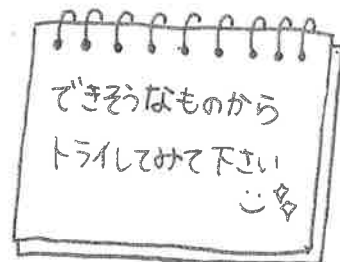 できそうなものから
トライしてみて下さい